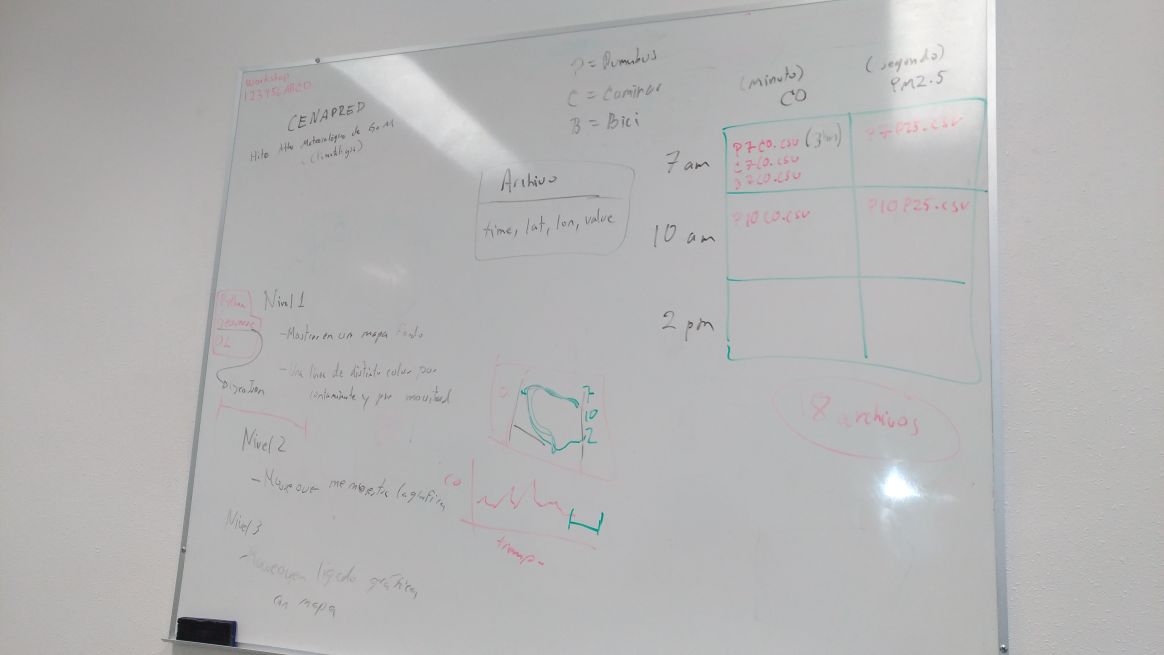 Workshop
12345ABCD
CENAPRED
Hito Atlas Metorológico de
(Climatológico)
P = Pumabus
C = Caminar
B = Bici
Archivo
time, lat, lon, value
(minuto)
CO
(segundo)
PM2.5
7 am
P7CO.csv (3hrs)
C7CO.csv
B7CO.csv
P7P25.csv
10 am
P10CO.csv
P10P25.csv
2 pm
18 archivos
Python
Nivel 1
- Mostrar en un mapa Fondo
- Una línea de distinto color por
contaminante y por movilidad
Nivel 2
- Mouseover me muestra la gráfica
Nivel 3
- Mouseover ligado gráfica
con mapa
7
10
2
CO
tiempo